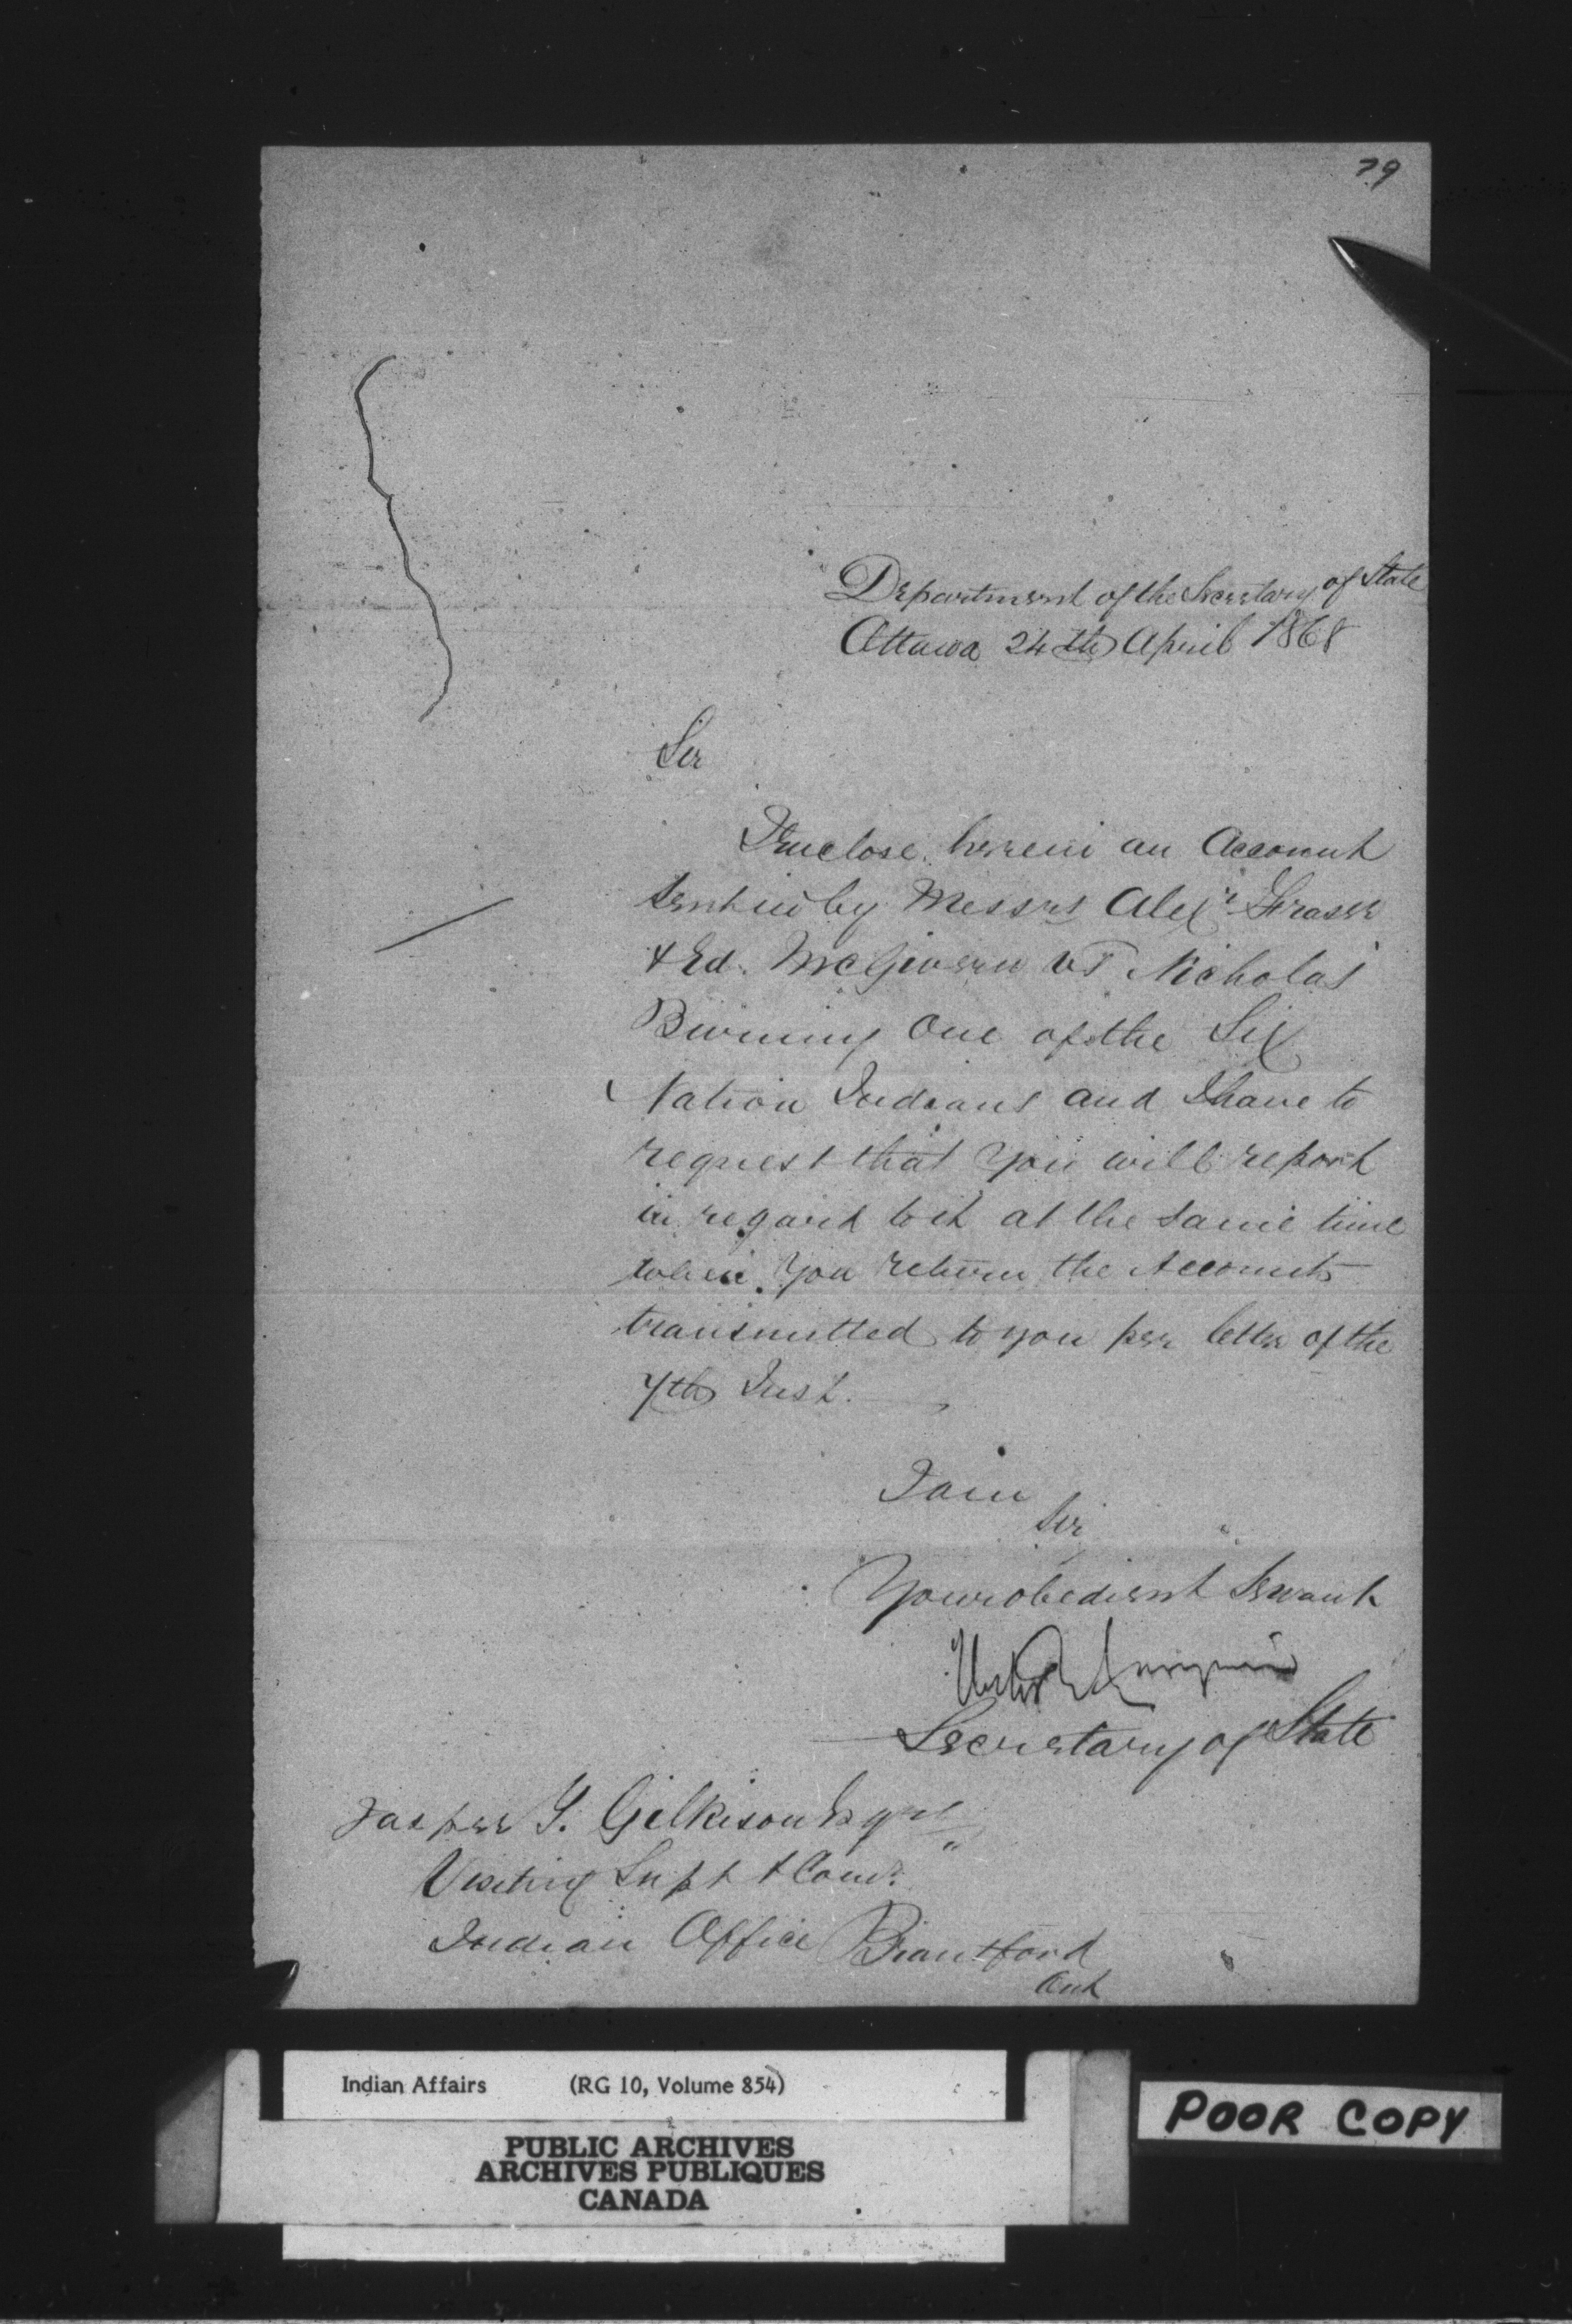 79
Department of the Secretary of State
Ottawa 24th April 1868
Sir
I enclose herein an Account
sent in by Messrs Alexr Fraser
& Ed. McGivern vs Nicholas
Burning One of the Six
Nation Indians and I have to
request that you will report
in regard to it at the same time
when you return the Accounts
transmitted to you per letter of the
7th Inst.
I am
Sir
Your obedient Servant
Secretary of State
Jasper T. Gilkison Esqre
Visiting Supt & Comr.
Indian Office Brantford
Ont
Indian Affairs (RG 10, Volume 854)
PUBLIC ARCHIVES
ARCHIVES PUBLIQUES
CANADA
POOR COPY